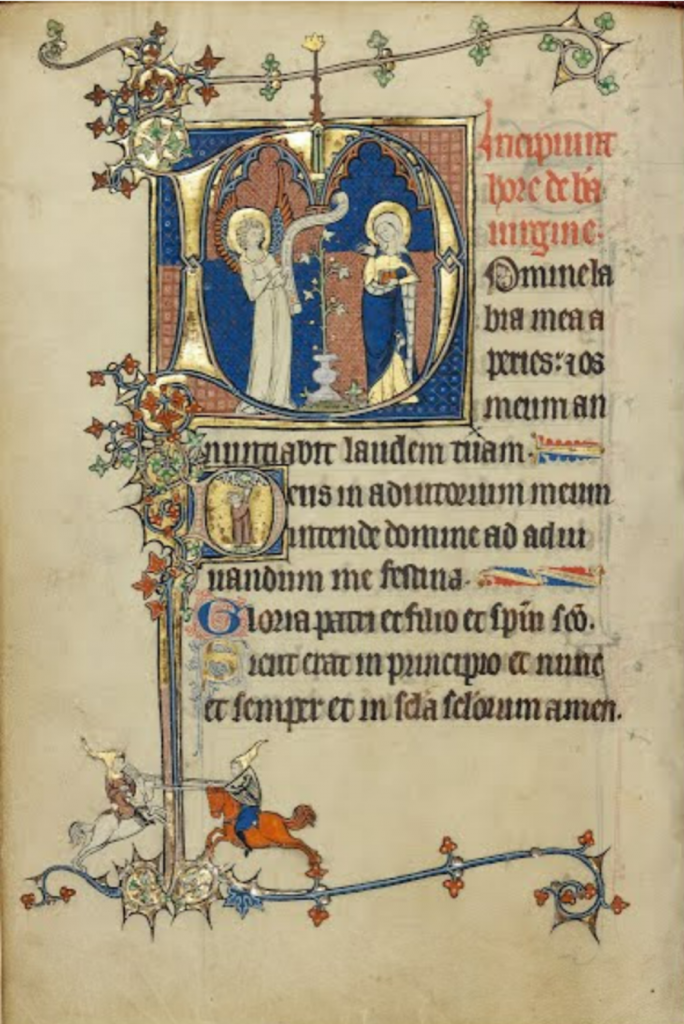 Incipiunt
hore de bã
uirgine.
Domine la
bia mea a
peries: ⁊ os
meum an
nuntiabit laudem tuam.
Deus in adiutorium meum
intende domine ad adiu
uandum me festina.
Gloria patri et filio et spũi sc̃o.
Sicut erat in principio et nunc
et semper et in sc̃la sc̃lorum amen.